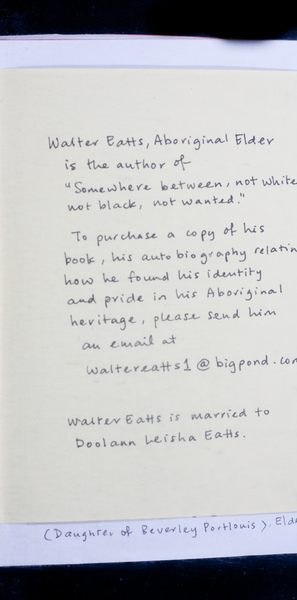 Walter Eatts, Aboriginal Elder
is the author of
"Somewhere between, not white
not black, not wanted."
To purchase a copy of his
book, his autobiography relatin
how he found his identity
and pride in his Aboriginal
heritage, please send him
an email at
waltereatts1@bigpond.com
Walter Eatts is married to
Doolann Leisha Eatts.
(Daughter of Beverley Portlouis). Elde